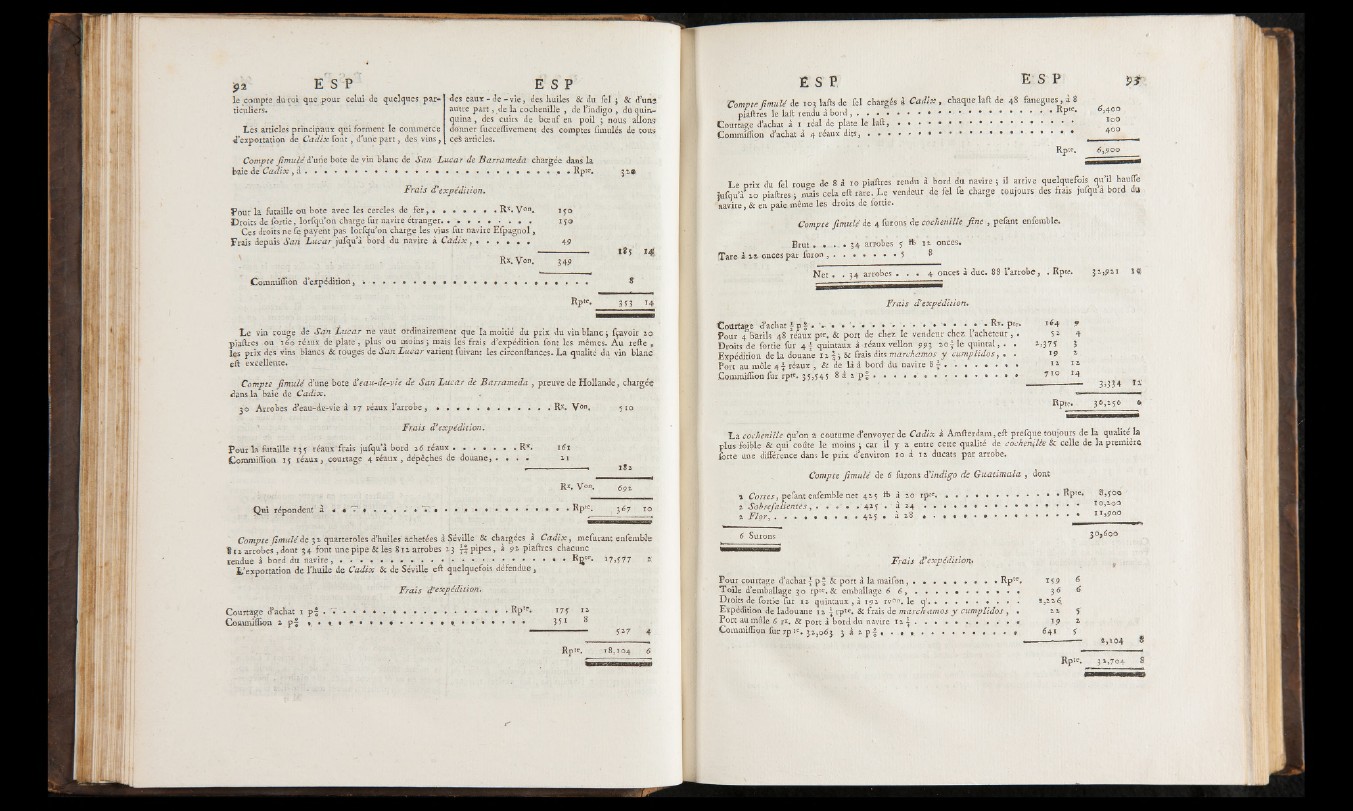 92 ESP ESP
le compte du roi que pour celui de quelques par-
ticuliers.
Les articles principaux qui forment le commerce
d'exportation de Cadix sont, d'une part, des vins,
des eaux-de-vie, des huiles & du sel ; & d'une
autre part, de la cochenille, de l'indigo, du quin-
quina, des cuirs de bœuf en poil ; nous allons
donner successivement des comptes simulés de tous
ces articles.
Compte simulé d'une bote de vin blanc de San Lucar de Barrameda chargée dans la
baie de Cadix, à . . . . . . Rpte. 320
Frais d'expédition.
Pour la futaille ou bote avec les cercles de fer, . . . . . . Rx. Von. 150
Droits de sortie, lorsqu'on charge sur navire étranger. . . . . . 150
Ces droits ne se payent pas lorsqu'on charge les vins sur navire Espagnol,
Frais depuis San Lucar jusqu'à bord du navire à Cadix, . . . . . . 49
185 14
Rx. Von. 349
Commission d'expédition, . . . . . . 8
Rpte. 353 14
Le vin rouge de San Lucar ne vaut ordinairement que la moitié du prix du vin blanc ; sçavoir 20
piastres ou 160 réaux de plate, plus ou moins ; mais les frais d'expédition sont les mêmes. Au reste,
les prix des vins blancs & rouges de San Lucar varient suivant les circonstances. La qualité du vin blanc
est excellente.
Compte simulé d'une bote d'eau-de-vie de San Lucar de Barrameda, preuve de Hollande, chargée
dans la baie de Cadix.
30 Arrobes d'eau-de-vie à 17 réaux l'arrobe, . . . . . . Rx. Von. 510
Frais d'expédition.
Pour la futaille 135 réaux frais jusqu'à bord 26 réaux . . . . . . Rx. 161
Commission 15 réaux, courtage 4 réaux, dépêches de douane, . . . . 21
182
Rx. Von. 692
Qui répondent à . . . . . . Rpte. 367 10
Compte simulé de 32 quarteroles d'huiles achetées à Séville & chargées à Cadix, mesurant ensemble
812 arrobes, dont 34 font une pipe & les 812 arrobes 23 pipes, à 92 piastres chacune
rendue à bord du navire, . . . . . . Rpte. 17,577 2
L'exportation de l'huile de Cadix & de Séville est quelquefois défendue,
Frais d'expédition.
Courtage d'achat 1 p⁰⁄₀ . . . . . . Rpte. 175 12
Commission 2 p⁰⁄₀ . . . . . . 351 8
527 4
Rpte. 18,104 6
ESP ESP 93
Compte simulé de 103 lasts de sel chargés à Cadix, chaque last de 48 fanegues, à 8
piastres le last rendu à bord, . . . . . . Rpte. 6,400
Courtage d'achat à 1 réal de plate le last, . . . . . . 100
Commission d'achat à 4 réaux dits, . . . . . . 400
Rpte. 6,900
Le prix du sel rouge de 8 à 10 piastres rendu à bord du navire ; il arrive quelquefois qu'il hausse
jusqu'à 20 piastres ; mais cela est rare. Le vendeur de sel se charge toujours des frais jusqu'à bord du
navire, & en paie même les droits de sortie.
Compte simulé de 4 surons de cochenille fine, pesant ensemble.
Brut . . . . 34 arrobes 5 ℔ 12 onces.
Tare à 22 onces par suron, . . . . . . 5 8
Net . . 34 arrobes . . . 4 onces à duc. 88 l'arrobe, . Rpte. 32,921 10
Frais d'expédition.
Courtage d'achat ½ p⁰⁄₀ . . . . . . Rx. pte. 164 9
Pour 4 barils 48 réaux pte. & port de chez le vendeur chez l'acheteur, . 52 4
Droits de sortie sur 4 quintaux à réaux vellon 993 20 le quintal, . . 2,375 3
Expédition de la douane 12 ; & frais dits marchamos y cumplidos, . . 19 2
Port au môle 4 réaux, & de là à bord du navire 8 . . . . . . 12 12
Commission sur rpte. 35,545 8 à 2 p⁰⁄₀ . . . . . . 710 14
3,334 12
Rpte. 36,256
La cochenille qu'on a coutume d'envoyer de Cadix à Amsterdam, est presque toujours de la qualité la
plus foible & qui coûte le moins ; car il y a entre cette qualité de cochenille & celle de la première
sorte une différence dans le prix d'environ 10 à 12 ducats par arrobe.
Compte simulé de 6 surons d'indigo de Guatimala, dont
2 Cortes, pesant ensemble net 425 ℔ à 20 rpte. . . . . . . Rpte. 8,500
2 Sobresalientes, . . . . . 425 . à 24 . . . . . . 10,200
2 Flor, . . . . . . 425 . à 28 . . . . . . 11,900
6 Surons 30,600
Frais d'expédition.
Pour courtage d'achat ½ p⁰⁄₀ & port à la maison, . . . . . . Rpte. 159 6
Toile d'emballage 30 rpte. & emballage 6 6, . . . . . . 36 6
Droits de sortie sur 12 quintaux, à 192 rvon. le q. . . . . . . 1,226
Expédition de ladouane 12 rpte. & frais de marchamos y cumplidos, . 22 5
Port au môle 6 rx. & port à bord du navire 12 . . . . . . 19 2
Commission sur rpte. 32,063 3 à 2 p⁰⁄₀ . . . . . . 641 5
2,104 8
Rpte. 32,704 8